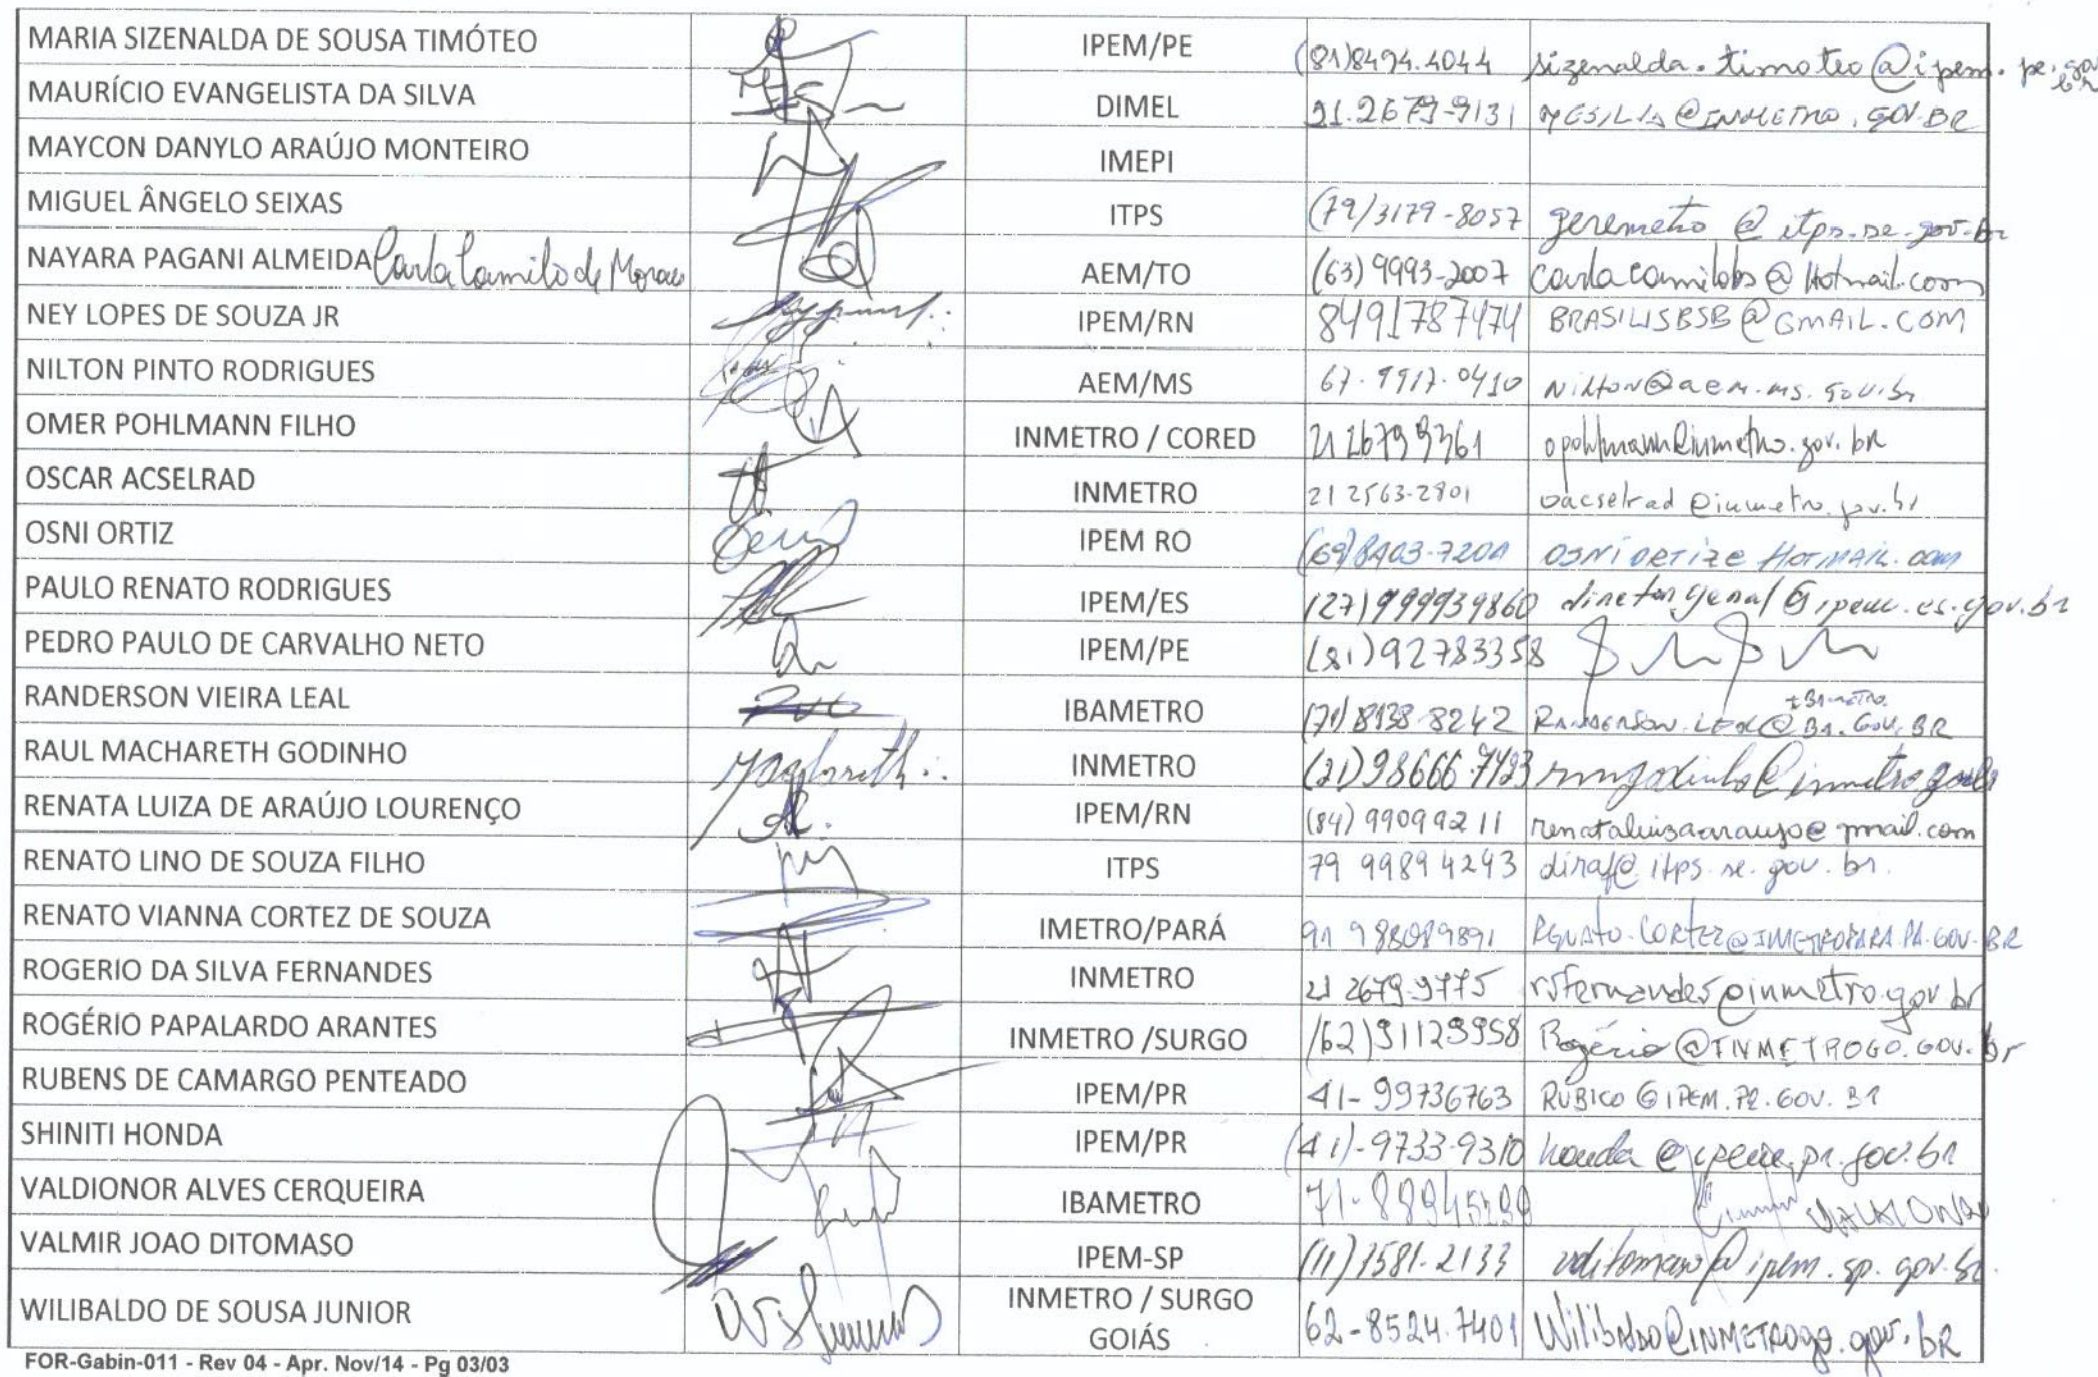 MARIA SIZENALDA DE SOUSA TIMÓTEO IPEM/PE (81)8494.4044 sizenalda.timoteo@ipem.pe.gov.br
MAURÍCIO EVANGELISTA DA SILVA DIMEL 21.2679-9131 @INMETRO.GOV.BR
MAYCON DANYLO ARAÚJO MONTEIRO IMEPI
MIGUEL ÂNGELO SEIXAS ITPS (79)3179-8057 geremetro@itps.se.gov.br
NAYARA PAGANI ALMEIDA Carla Camilo de Moraes AEM/TO (63) 9993-2007 carlacamilobs@Hotmail.com
NEY LOPES DE SOUZA JR IPEM/RN 8491787474 BRASILISBSB@GMAIL.COM
NILTON PINTO RODRIGUES AEM/MS 67.9917.0410 nilton@aem.ms.gov.br
OMER POHLMANN FILHO INMETRO / CORED 21 26799361 opohlmann@inmetro.gov.br
OSCAR ACSELRAD INMETRO 21 2563-2901 oacselrad@inmetro.gov.br
OSNI ORTIZ IPEM RO (69)8403-7201 OSNIORTIZ@HOTMAIL.com
PAULO RENATO RODRIGUES IPEM/ES (27)999939860 diretorgeral@ipem.es.gov.br
PEDRO PAULO DE CARVALHO NETO IPEM/PE (81)92783358
RANDERSON VIEIRA LEAL IBAMETRO (71)8138-8242 RANDERSON.LEAL@BA.GOV.BR
RAUL MACHARETH GODINHO INMETRO (21)98666.7423 rmgodinho@inmetro.gov.br
RENATA LUIZA DE ARAÚJO LOURENÇO IPEM/RN (84) 99099211 renataluizaaraujo@gmail.com
RENATO LINO DE SOUZA FILHO ITPS 79 99894243 diraf@itps.se.gov.br
RENATO VIANNA CORTEZ DE SOUZA IMETRO/PARÁ 91 988089891 RENATO.CORTEZ@IMETROPARA.PA.GOV.BR
ROGERIO DA SILVA FERNANDES INMETRO 21 2679.9775 rsfernandes@inmetro.gov.br
ROGÉRIO PAPALARDO ARANTES INMETRO /SURGO (62)91129958 Rogério@INMETROGO.GOV.br
RUBENS DE CAMARGO PENTEADO IPEM/PR 41-99736763 RUBICO@IPEM.PR.GOV.BR
SHINITI HONDA IPEM/PR (41)-9733-9310 honda@ipem.pr.gov.br
VALDIONOR ALVES CERQUEIRA IBAMETRO
VALMIR JOAO DITOMASO IPEM-SP (11)3581.2133 vditomaso@ipem.sp.gov.br
WILIBALDO DE SOUSA JUNIOR INMETRO / SURGO 62-8524.7401 Wilibaldo@INMETROgo.gov.br
GOIÁS
FOR-Gabin-011 - Rev 04 - Apr. Nov/14 - Pg 03/03